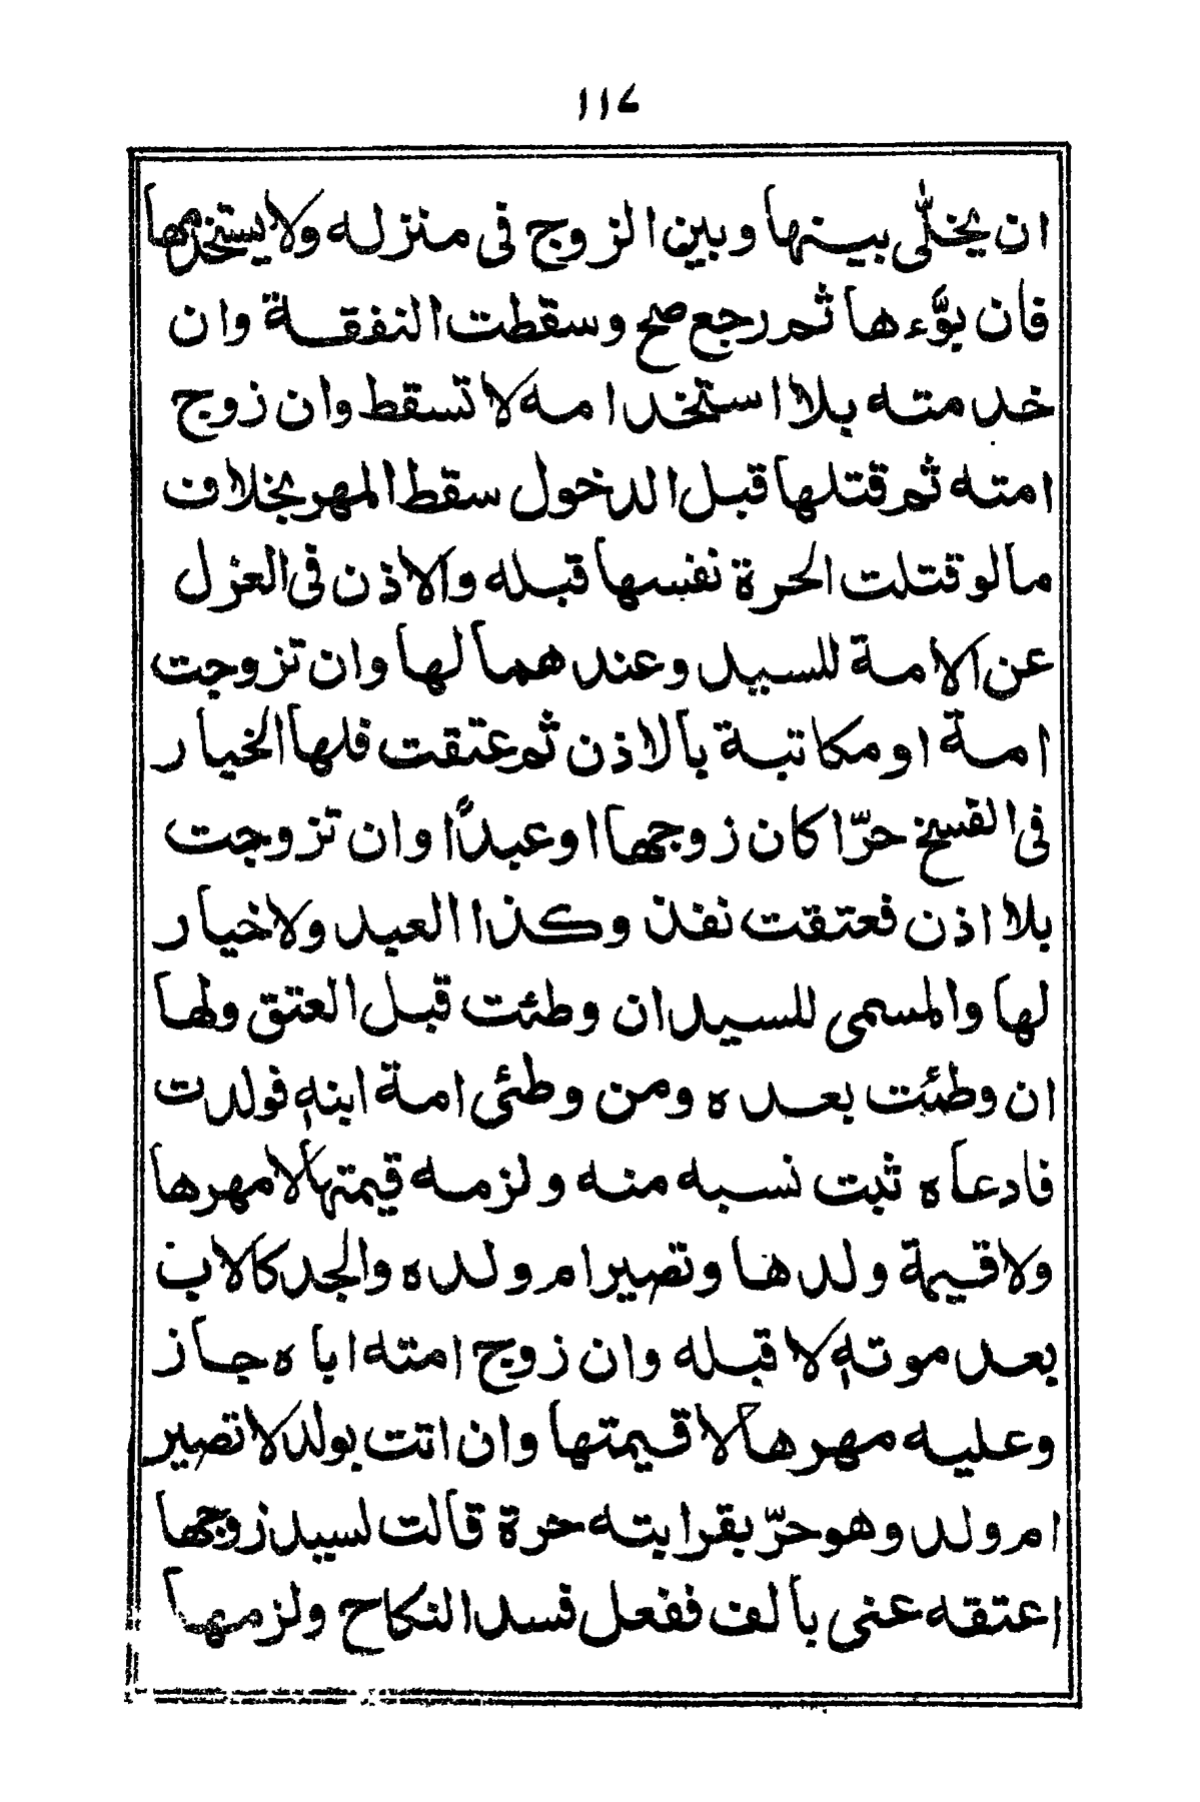 ١١٧
ان يخلّى بينها وبين الزوج فى منزله ولا يستخدمها
فان بوّءها ثم رجع صح وسقطت النفقة وان
خدمته بلا استخدامه لا تسقط وان زوج
امته ثم قتلها قبل الدخول سقط المهر بخلاف
مالو قتلت الحرة نفسها قبله والاذن فى العزل
عن الامة للسيد وعندهما لها وان تزوجت
امة او مكاتبة بالاذن ثم عتقت فلها الخيار
فى الفسخ حرّا كان زوجها او عبدًا وان تزوجت
بلا اذن فعتقت نفذ وكذا العبد ولا خيار
لها والمسمى للسيد ان وطئت قبل العتق ولها
ان وطئت بعده ومن وطئى امة ابنه فولدت
فادعاه ثبت نسبه منه ولزمه قيمتها لا مهرها
ولا قيمة ولدها وتصير ام ولده والجد كالاب
بعد موته لا قبله وان زوج امته اباه جاز
وعليه مهرها لا قيمتها وان اتت بولد لا تصير
ام ولد وهو حرّ بقرابته حرة قالت لسيد زوجها
اعتقه عنى بالف ففعل فسد النكاح ولزمها